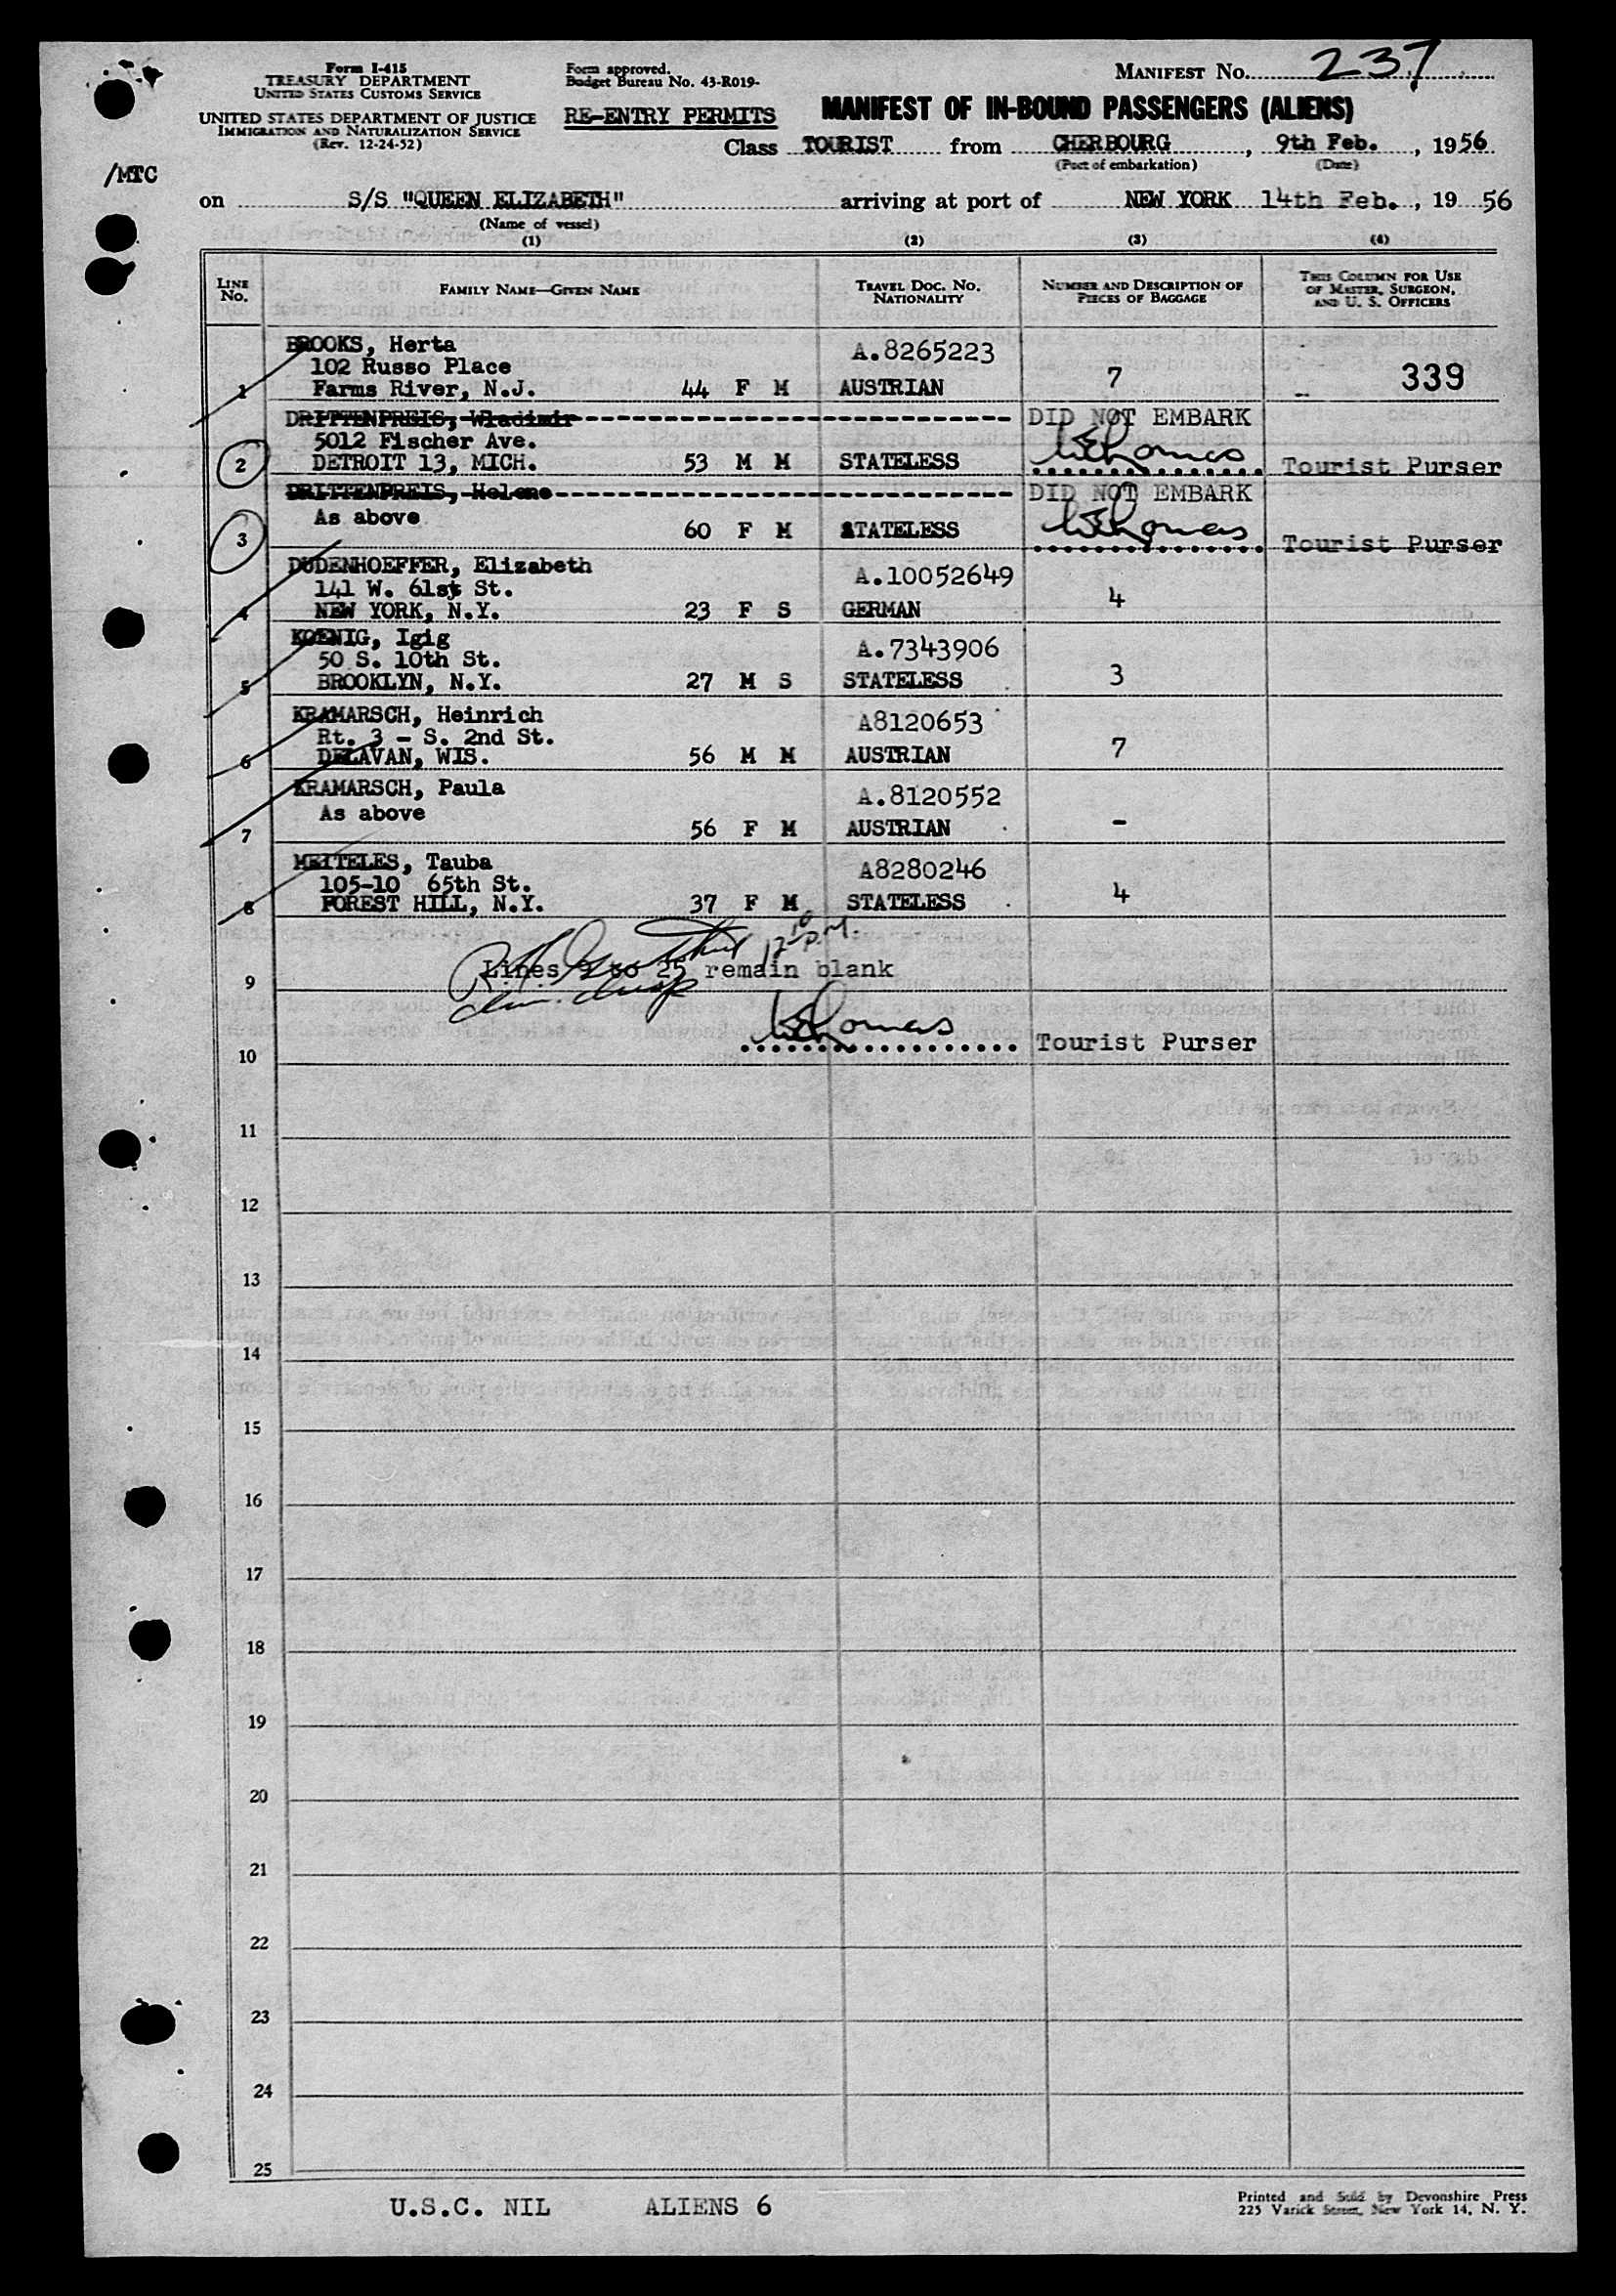 Form I-415
TREASURY DEPARTMENT
UNITED STATES CUSTOMS SERVICE
UNITED STATES DEPARTMENT OF JUSTICE
IMMIGRATION AND NATURALIZATION SERVICE
(Rev. 12-24-52)
Form approved.
Budget Bureau No. 43-R019-
RE-ENTRY PERMITS
MANIFEST No. 237
MANIFEST OF IN-BOUND PASSENGERS (ALIENS)
Class TOURIST from CHERBOURG, 9th Feb., 1956
(Port of embarkation) (Date)
/MTC
on S/S "QUEEN ELIZABETH" arriving at port of NEW YORK 14th Feb., 1956
(Name of vessel)
(1) (2) (3) (4)
LINE No. FAMILY NAME—GIVEN NAME TRAVEL DOC. NO. NATIONALITY NUMBER AND DESCRIPTION OF PIECES OF BAGGAGE THIS COLUMN FOR USE OF MASTER, SURGEON, AND U. S. OFFICERS
BROOKS, Herta A.8265223
102 Russo Place
1 Farms River, N.J. 44 F M AUSTRIAN 7 339
DRITTENPREIS, Wladimir DID NOT EMBARK
5012 Fischer Ave.
2 DETROIT 13, MICH. 53 M M STATELESS Thomas Tourist Purser
DRITTENPREIS, Helene DID NOT EMBARK
As above
3 60 F M STATELESS Thomas Tourist Purser
DUDENHOEFFER, Elizabeth A.10052649
141 W. 61st St.
4 NEW YORK, N.Y. 23 F S GERMAN 4
KOENIG, Igig A.7343906
50 S. 10th St.
5 BROOKLYN, N.Y. 27 M S STATELESS 3
KRAMARSCH, Heinrich A8120653
Rt. 3 - S. 2nd St.
6 DELAVAN, WIS. 56 M M AUSTRIAN 7
KRAMARSCH, Paula A.8120552
As above
7 56 F M AUSTRIAN -
MEITELES, Tauba A8280246
105-10 65th St.
8 FOREST HILL, N.Y. 37 F M STATELESS 4
12 10 P.M.
9 Lines 9 to 25 remain blank
Thomas
10 Tourist Purser
11
12
13
14
15
16
17
18
19
20
21
22
23
24
25
U.S.C. NIL ALIENS 6
Printed and Sold by Devonshire Press
225 Varick Street, New York 14, N. Y.